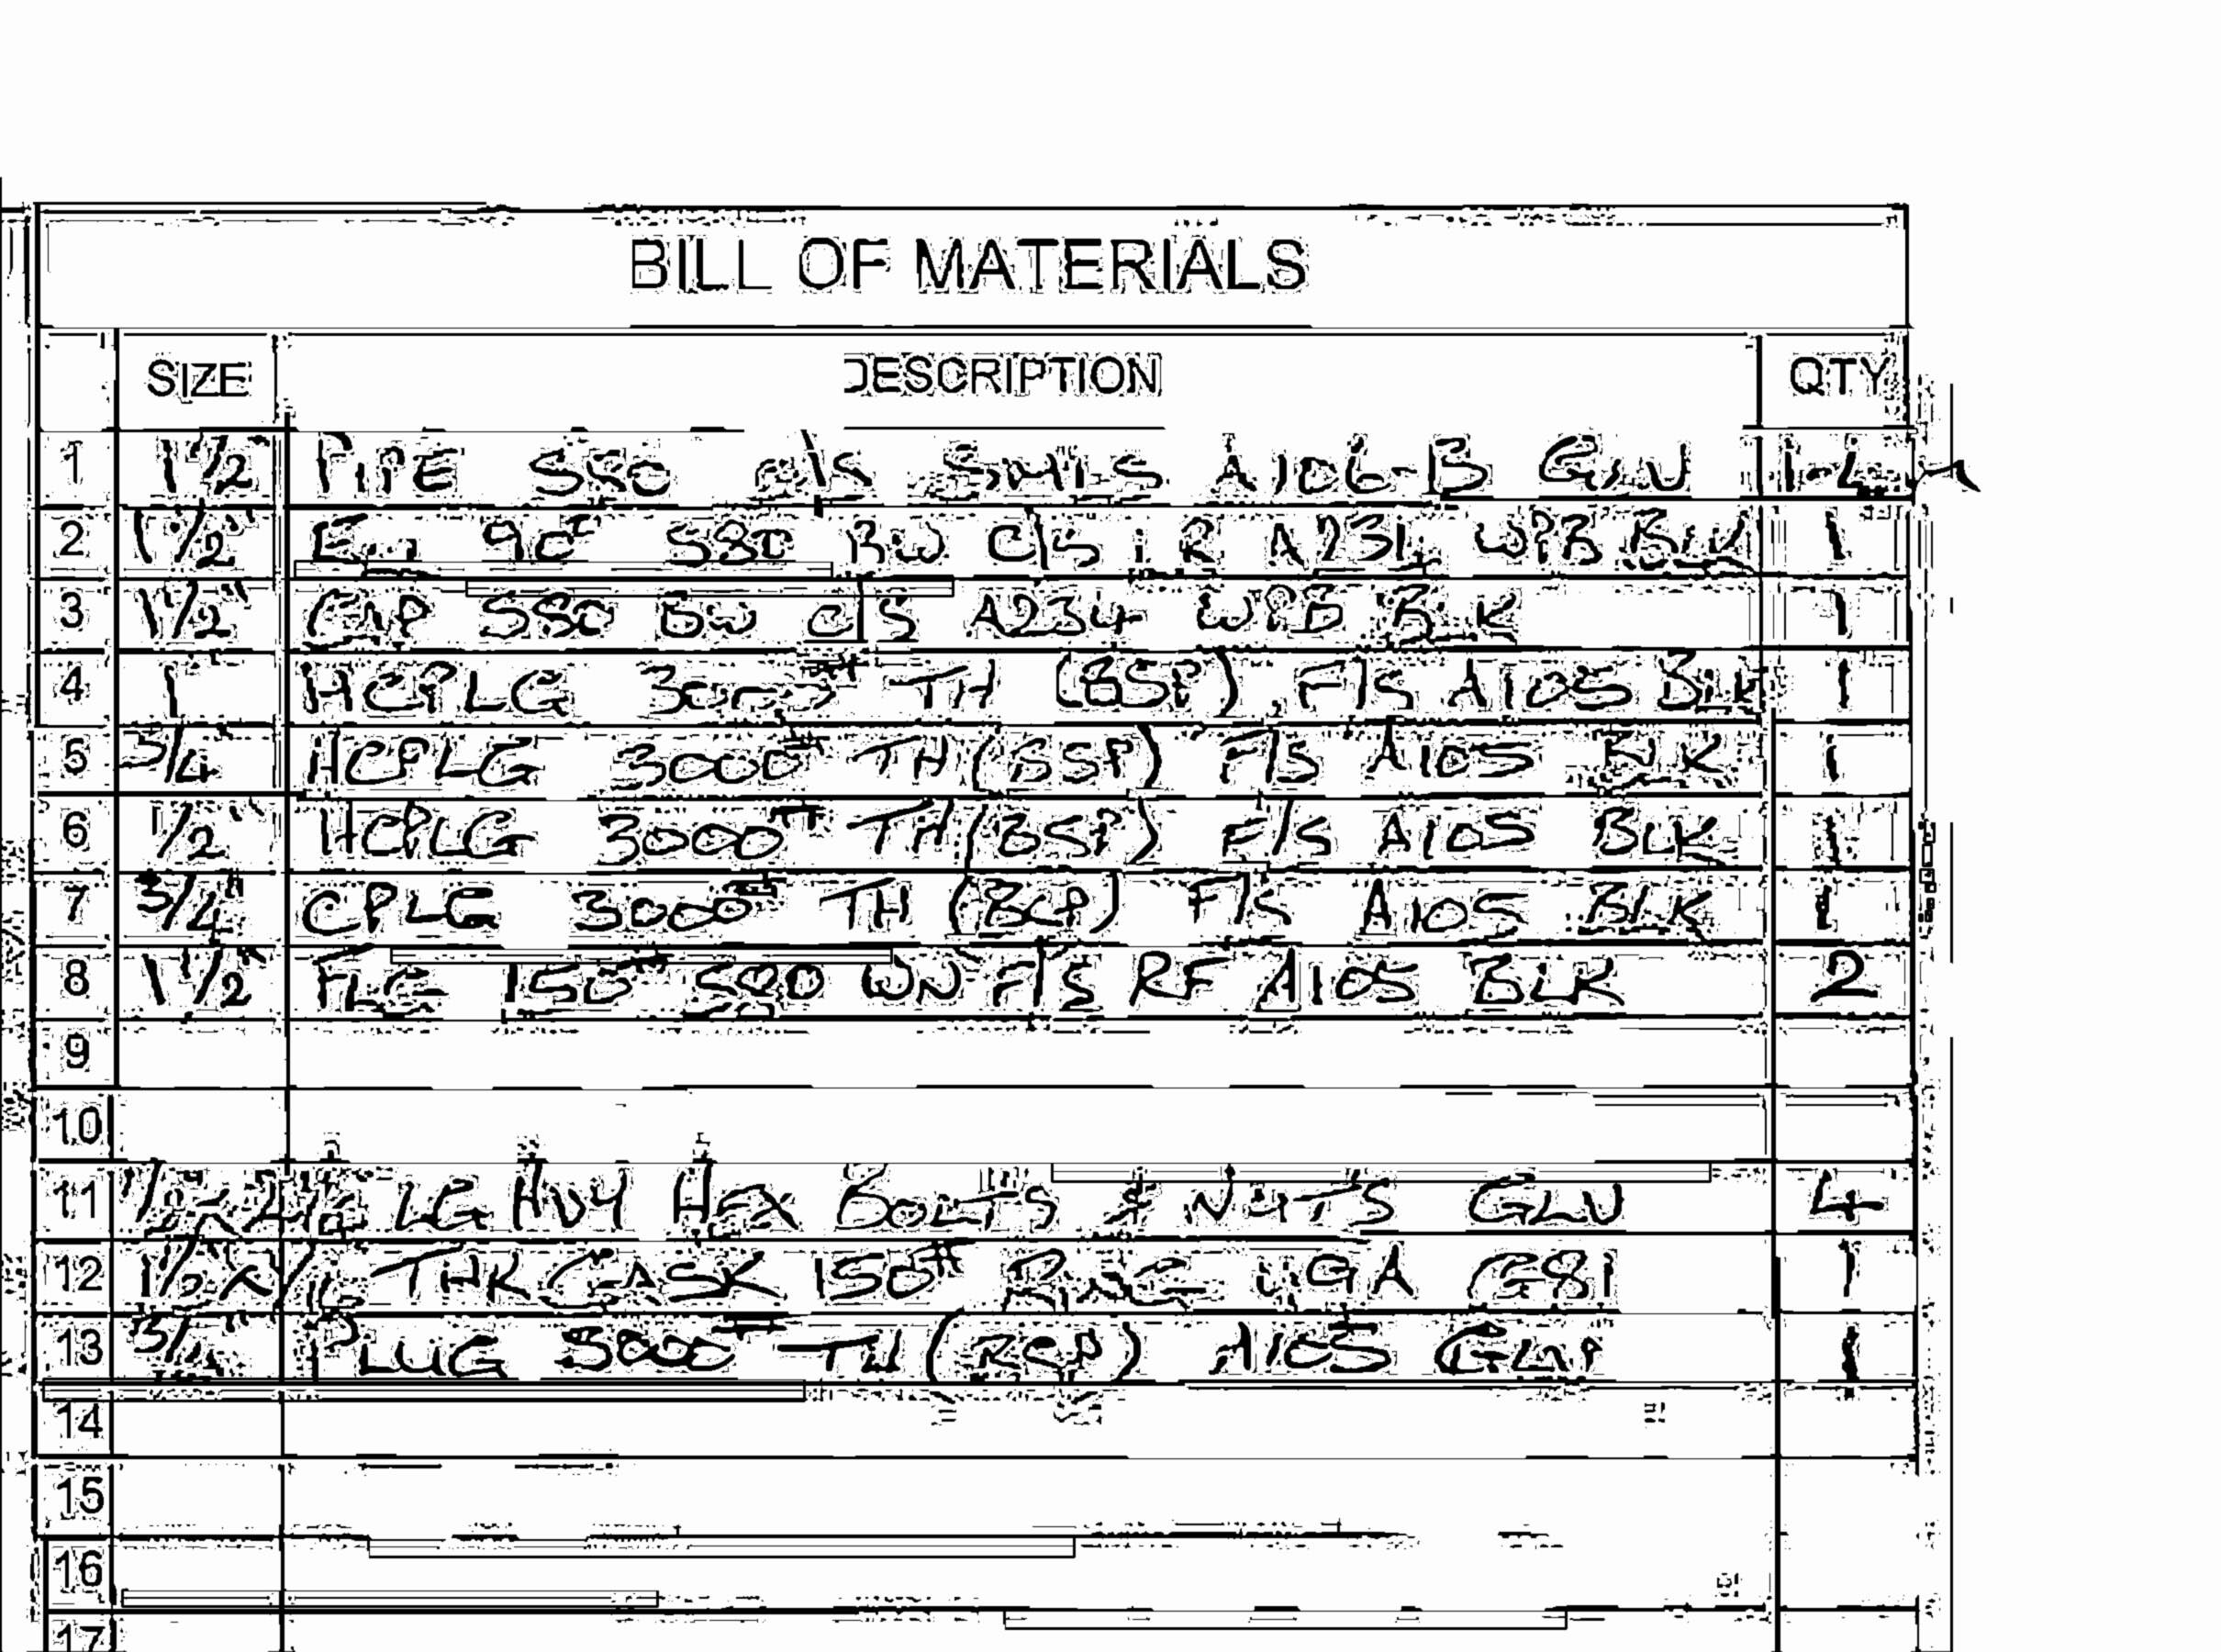 BILL OF MATERIALS
SIZE DESCRIPTION QTY
1 1½ PIPE S80 C/S SMLS A106-B
2 1½" 90° S80 BW C/S LR A234 WPB BLK 1
3 1½" CAP S80 BW C/S A234 WPB BLK 1
4 1" HCPLG 3000# TH (BSP) F/S A105 BLK 1
5 3/4" HCPLG 3000# TH (BSP) F/S A105 BLK 1
6 1/2" HCPLG 3000# TH (BSP) F/S A105 BLK 1
7 3/4" CPLG 3000# TH F/S A105 BLK 1
8 1½" FLG 150# S80 WN F/S RF A105 BLK 2
9
10
11 LG HVY HEX BOLTS & NUTS 4
12 1½" x 1/16 THK GASK 150# RING 1
13 3/4" PLUG 3000# TH A105 1
14
15
16
17